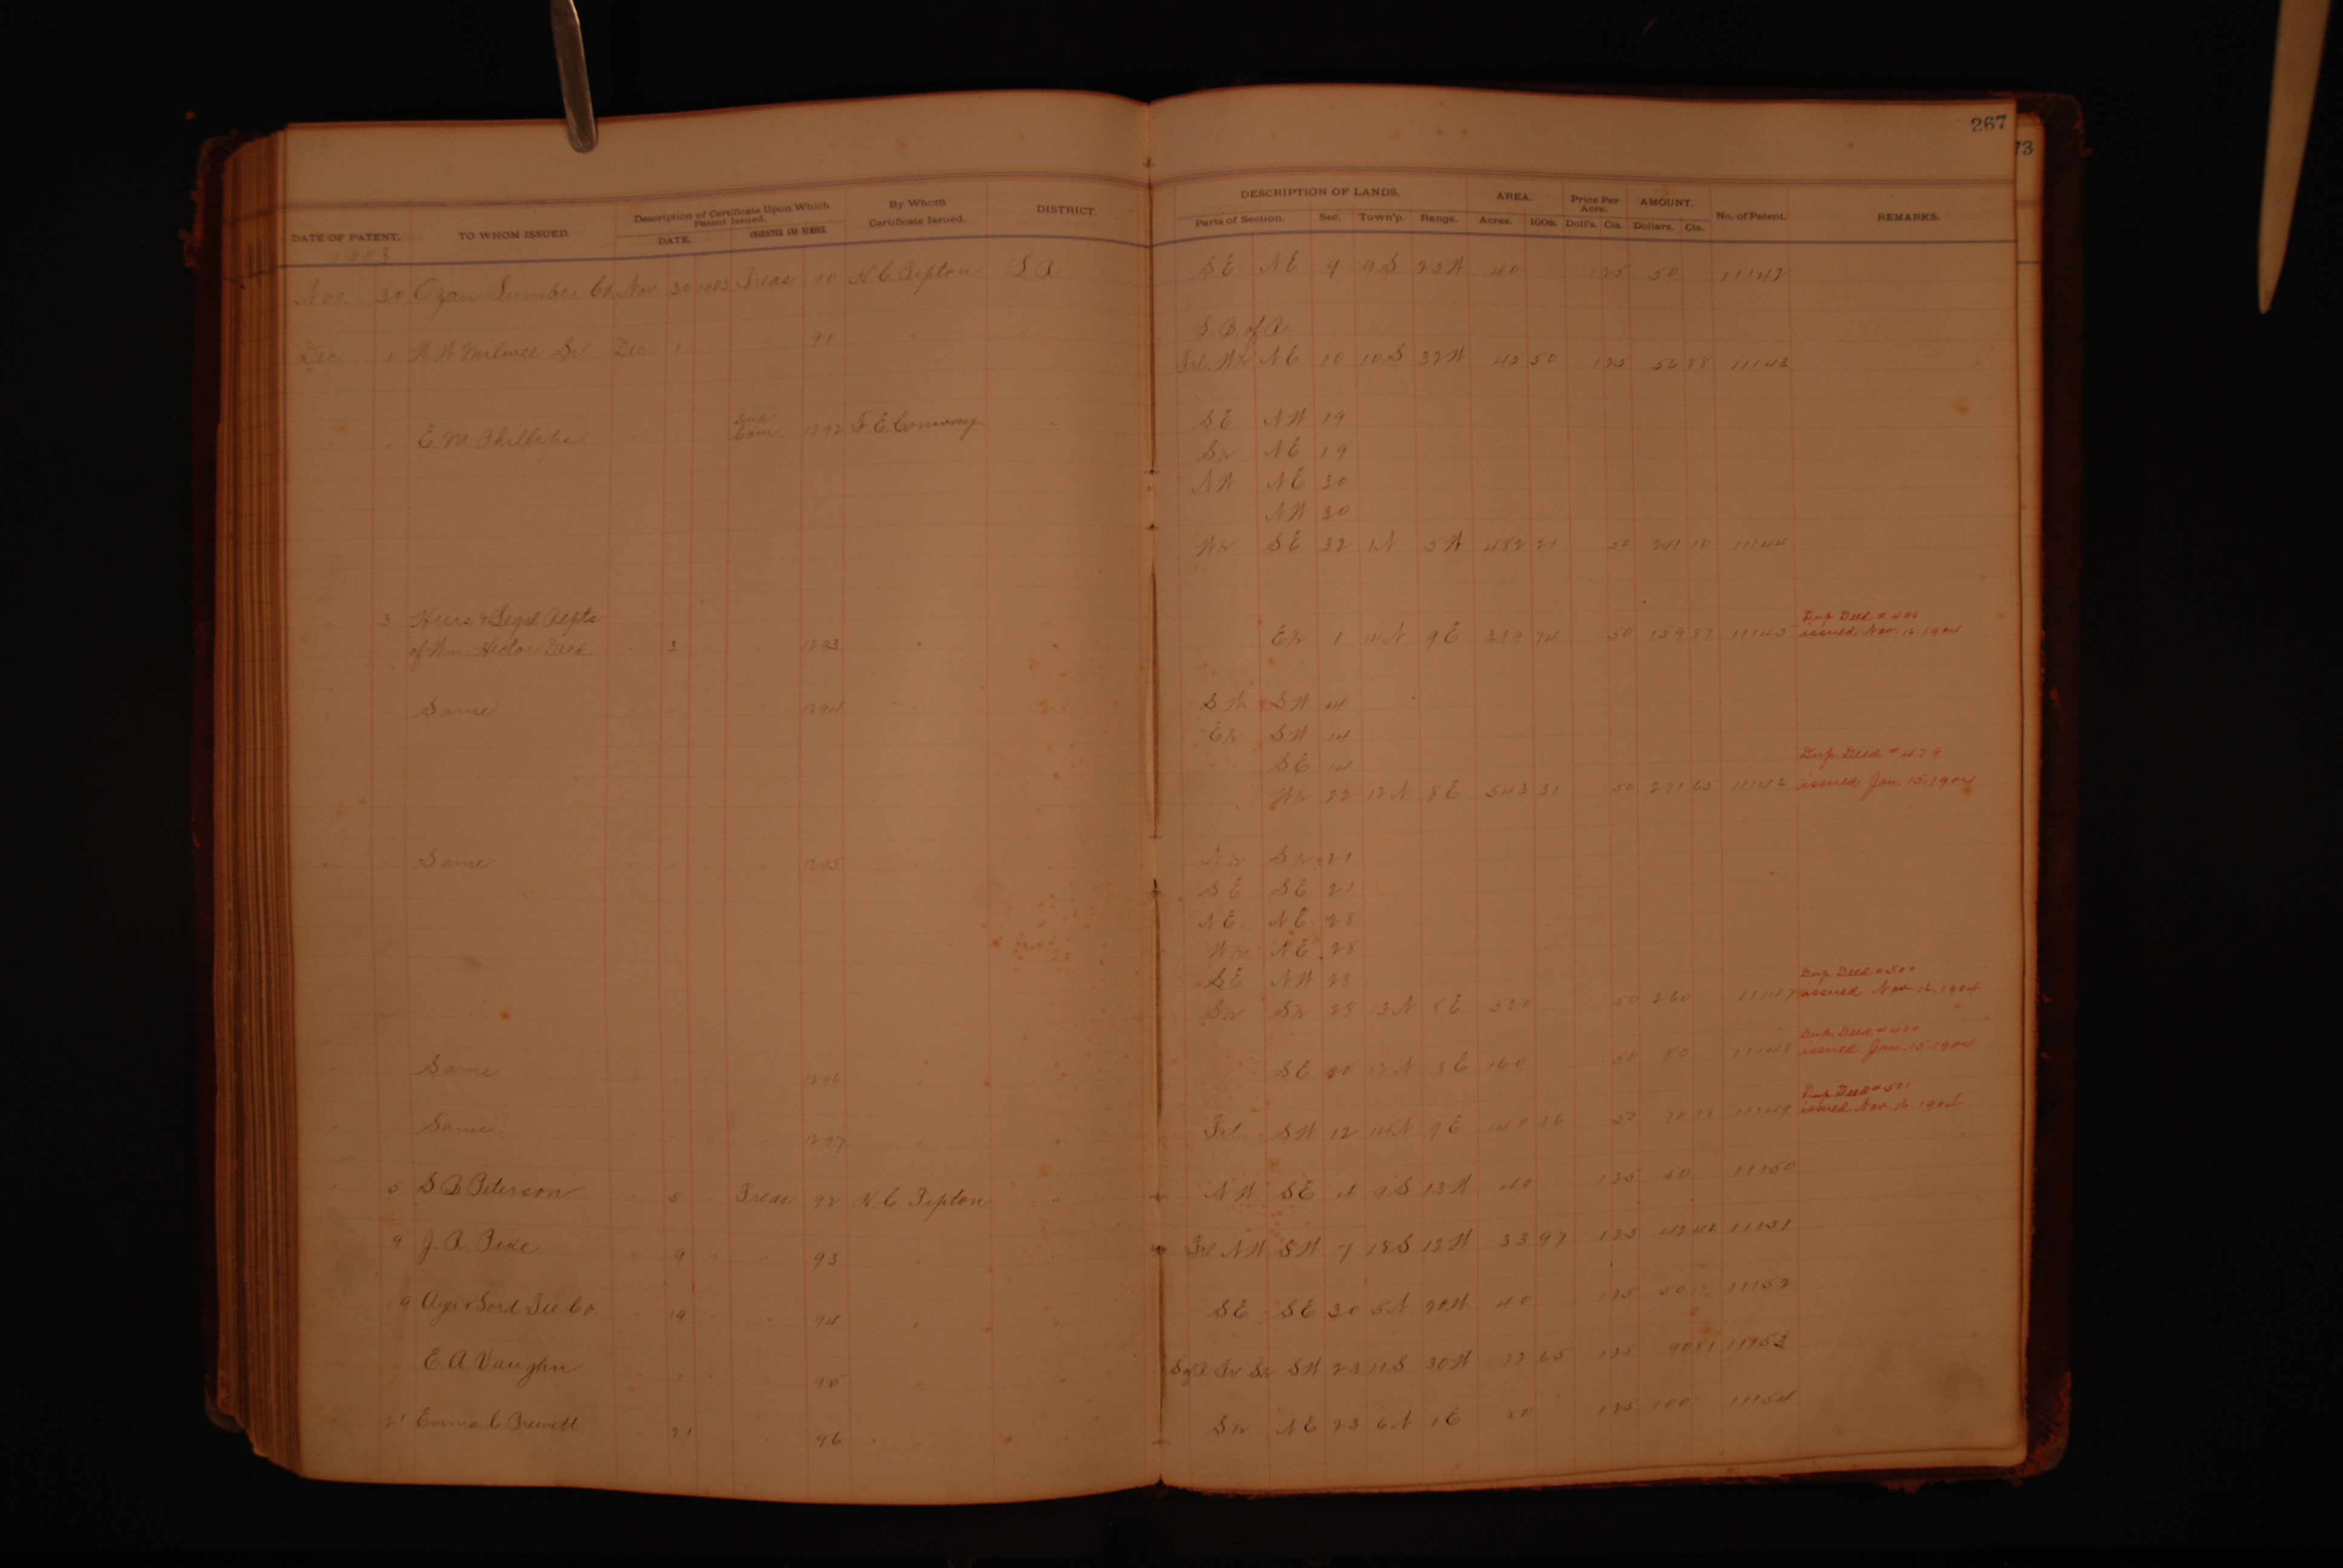 267
73
DATE OF PATENT. TO WHOM ISSUED. Description of Certificate Upon Which Patent Issued. DATE. CHARACTER AND NUMBER. By Whom Certificate Issued. DISTRICT. DESCRIPTION OF LANDS. Parts of Section. Sec. Town'p. Range. AREA. Acres. 100ths. Price Per Acre. Doll's. Cts. AMOUNT. Dollars. Cts. No. of Patent. REMARKS.
1903
Nov. 30 Ozan Lumber Co. Nov 30 1903 Treas 90 H. C. Tipton S E N E 9 9 S 25 W 40 1 25 50 11142
S. B. of R.
Dec. 1 Dec. 1 " 91 " " Frl. W½ N E 10 10 S 32 W 45 50 1 25 56 88 11143
" " E. M. Phillips " " " Com. 1292 F. E. Conway " S E N W 19
S½ N E 19
N W N E 30
N W 30
W½ S E 32 1 N 5 W 482 21 50 241 10 11144
" 3 Heirs & Legal Repts
of Wm. Hector Decd " 3 " " 1293 " E½ 1 14 N 9 E 319 74 50 159 87 11145 Dup. Deed # issued Nov. 16, 1904
" " Same " " " " 1294 " " S W S W 14
E½ S W 14
S E 14
W½ 22 12 N 8 E 543 31 50 271 65 11146 Dup. Deed # 479 issued Jan. 15, 1904
" " Same " " " " 1295 " " N½ S½ 21
S E S E 21
N E N E 28
W½ N E 28
S E N W 28
S½ S½ 28 13 N 8 E 520 50 260 11147 Dup. Deed # 500 issued Nov. 16, 1904
" " Same " " " " 1296 " " S E 20 12 N 8 E 160 50 80 11148 Dup. Deed # 480 issued Jan. 15, 1904
" " Same " " " " 1297 " " Frl. S W 12 14 N 9 E 140 36 50 70 18 11149 Dup. Deed # 501 issued Nov. 16, 1904
" 5 S B Peterson " 5 " Treas 92 H. C. Tipton " N W S E 4 9 S 13 W 40 1 25 50 11150
9 J. A. Pike " 9 " " 93 " " Frl N W S W 7 18 S 12 W 33 97 1 25 42 46 11151
19 Ayer & Lord Tie Co. " 19 " " 94 " " S E S E 30 5 N 20 W 40 1 25 50 11152
E. A. Vaughn " " " 95 " " S½ S W 23 11 S 30 W 72 65 1 25 90 81 11153
21 Emma C Prewett 21 " 96 " " S½ N E 23 6 N 1 E 80 1 25 100 11154